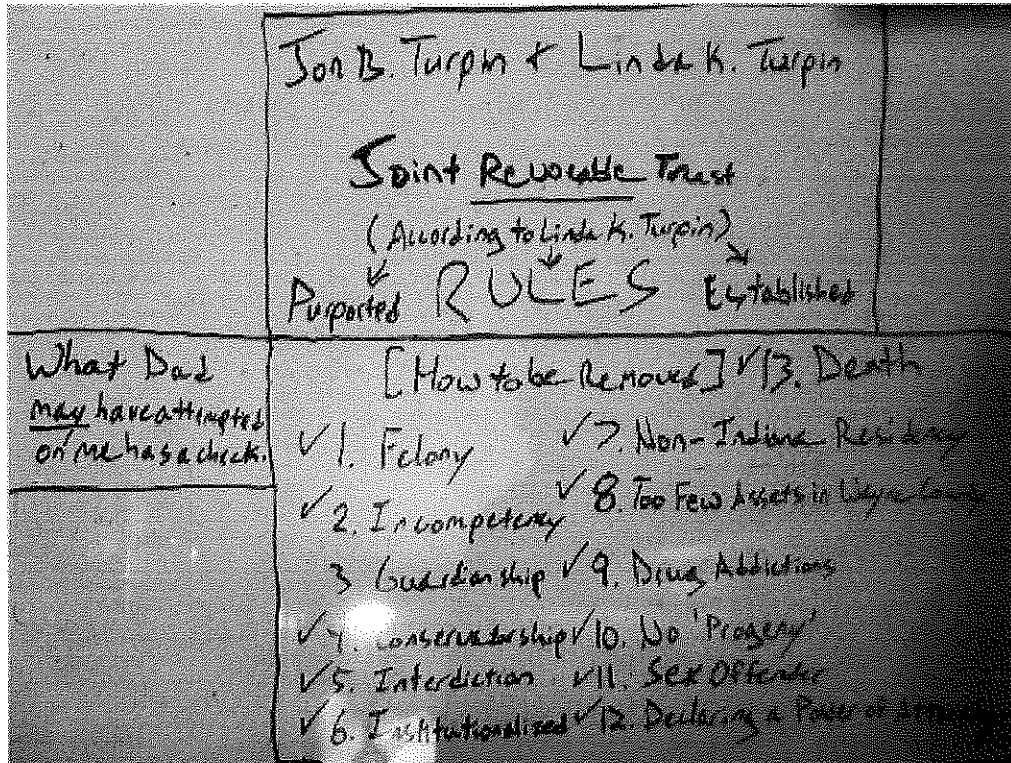 Jon B. Turpin + Linda K. Turpin
Joint Revocable Trust
(According to Linda K. Turpin)
Purported RULES Established
What Dad
may have attempted
on me has a check.
[How to be Removed] ✓13. Death
✓1. Felony
✓2. Incompetency
3 Guardianship
✓4. Conservatorship
✓5. Interdiction
✓6. Institutionalized
✓7. Non-Indiana Residency
✓8. Too Few Assets in Wayne
✓9. Drug Addictions
✓10. No 'Progeny'
✓11. Sex Offender
✓12. Declaring a Power of